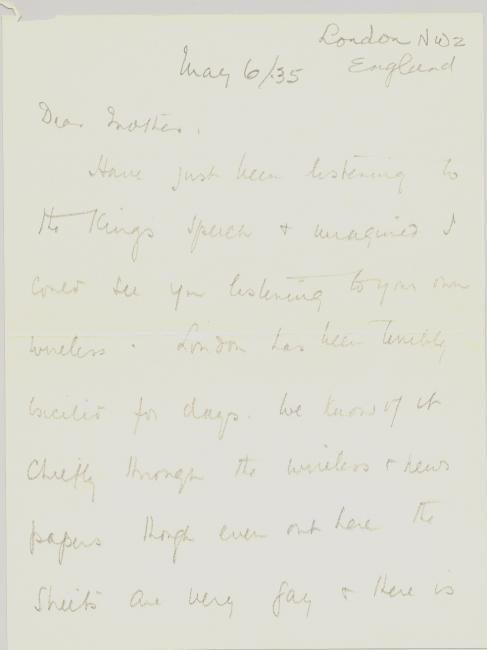 London NW2
England
May 6/35
Dear Mother,
Have just been listening to
the King's speech + imagined I
could see you listening to your own
wireless. London has been terribly
excited for days. We know of it
chiefly through the wireless + news
papers though even out here the
streets are very gay + there is